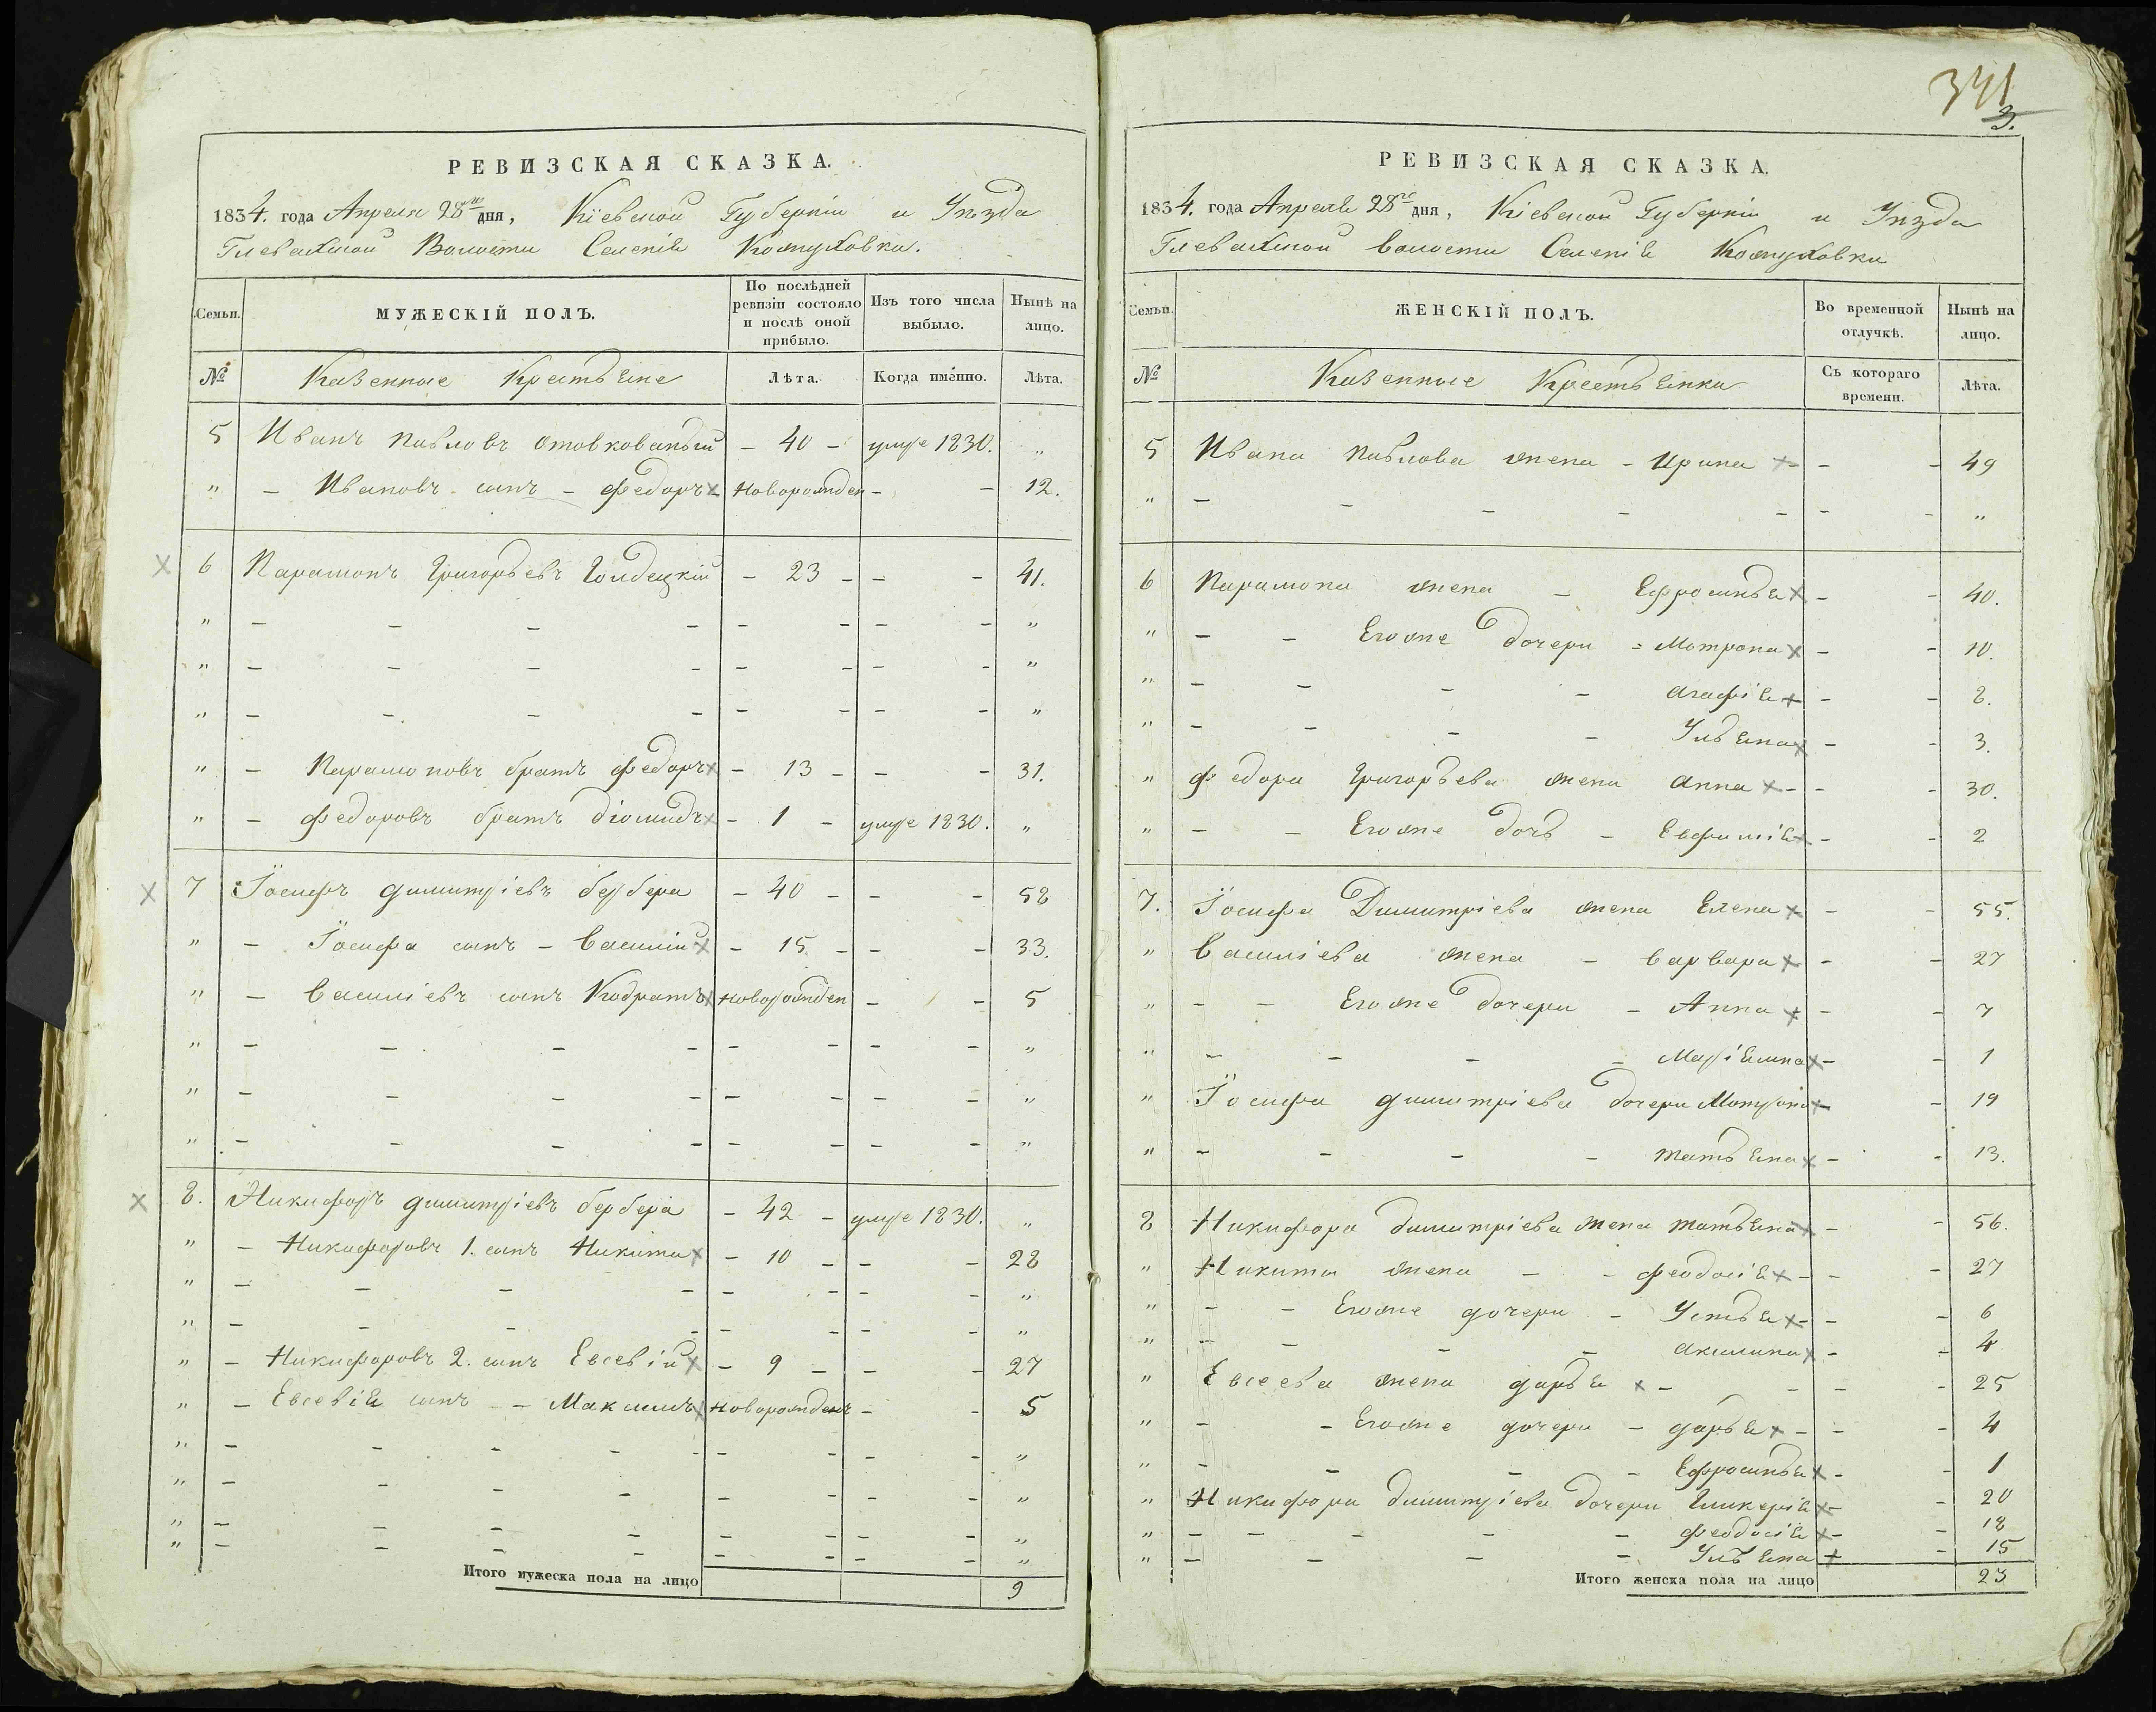 341
3.
РЕВИЗСКАЯ СКАЗКА.
1834. года Апреля 28го дня, Кіевской Губерніи и Уѣзда
Глевахской Волости Селенія Кожуховки.
Семьи. МУЖЕСКІЙ ПОЛЪ. По послѣдней ревизіи состояло и послѣ оной прибыло. Изъ того числа выбыло. Нынѣ на лицо.
№ Казенные Крестьяне Лѣта. Когда имéнно. Лѣта.
5 Иванъ Павловъ - 40 - умре 1830. „
„ - Ивановъ сынъ - Федоръ Новорожден - - 12.
6 Парамонъ Григорьевъ - 23 - - - 41.
„ - - - - - - - - „
„ - - - - - - - - „
„ - - - - - - - - „
„ - Парамоновъ братъ Федоръ - 13 - - - 31.
„ - Федоровъ братъ Діомидъ - 1 - умре 1830. „
7 Іосифъ Димитріевъ бербера - 40 - - - 58
„ - Іосифа сынъ - Василій - 15 - - - 33.
„ - Василіевъ сынъ Кодратъ Новорожден - - 5
„ - - - - - - - - „
„ - - - - - - - - „
„ - - - - - - - - „
8. Никифоръ Димитріевъ бербера - 42 - умре 1830. „
„ - Никифоровъ 1. сынъ Никита - 10 - - - 28
„ - - - - - - - - „
„ - - - - - - - - „
„ - Никифоровъ 2. сынъ Евсевій - 9 - - - 27
„ - Евсевія сынъ - - Максимъ Новорожденъ - - 5
„ - - - - - - - - „
„ - - - - - - - - „
„ - - - - - - - - „
„ - - - - - - - - „
Итого мужеска пола на лицо 9
РЕВИЗСКАЯ СКАЗКА.
1834. года Апреля 28го дня, Кіевской Губерніи и Уѣзда
Глевахской Волости Селенія Кожуховки
Семьи. ЖЕНСКІЙ ПОЛЪ. Во временной отлучкѣ. Нынѣ на лицо.
№ Казенные Крестьянки Съ котораго времени. Лѣта.
5 Ивана Павлова жена - Ирина - - 49
„ - - - - - - - „
6 Парамона жена - Ефросинья - - 40.
„ - - Егоже дочери - Мотрона - - 10.
„ - - - - Агафія - - 8.
„ - - - - Ульяна - - 3.
„ Федора Григорьева жена Анна - - - 30.
„ - - Егоже дочь - Евфимія - - 2
7. Іосифа Димитріева жена Елена - - 55.
„ Василіева жена - Варвара - - 27
„ - - Егоже дочери - Анна - - 7
„ - - - - Маріямна - - 1
„ Іосифа Димитріева дочери Мотрона - 19
„ - - - - Татьяна - - 13.
8 Никифора Димитріева жена Татьяна - - 56.
„ Никиты жена - - Феодосія - - - 27
„ - - Егоже дочери - Устья - - 6
„ - - - - Акилина - - 4
„ Евсевія жена Дарья - - - - 25
„ - - Егоже дочери - Дарья - - - 4
„ - - - - Ефросинья - - 1
„ Никифора Димитріева дочери Гликерія - - 20
„ - - - - - Феодосія - - 18
„ - - - - Ульяна - 15
Итого женска пола на лицо 23